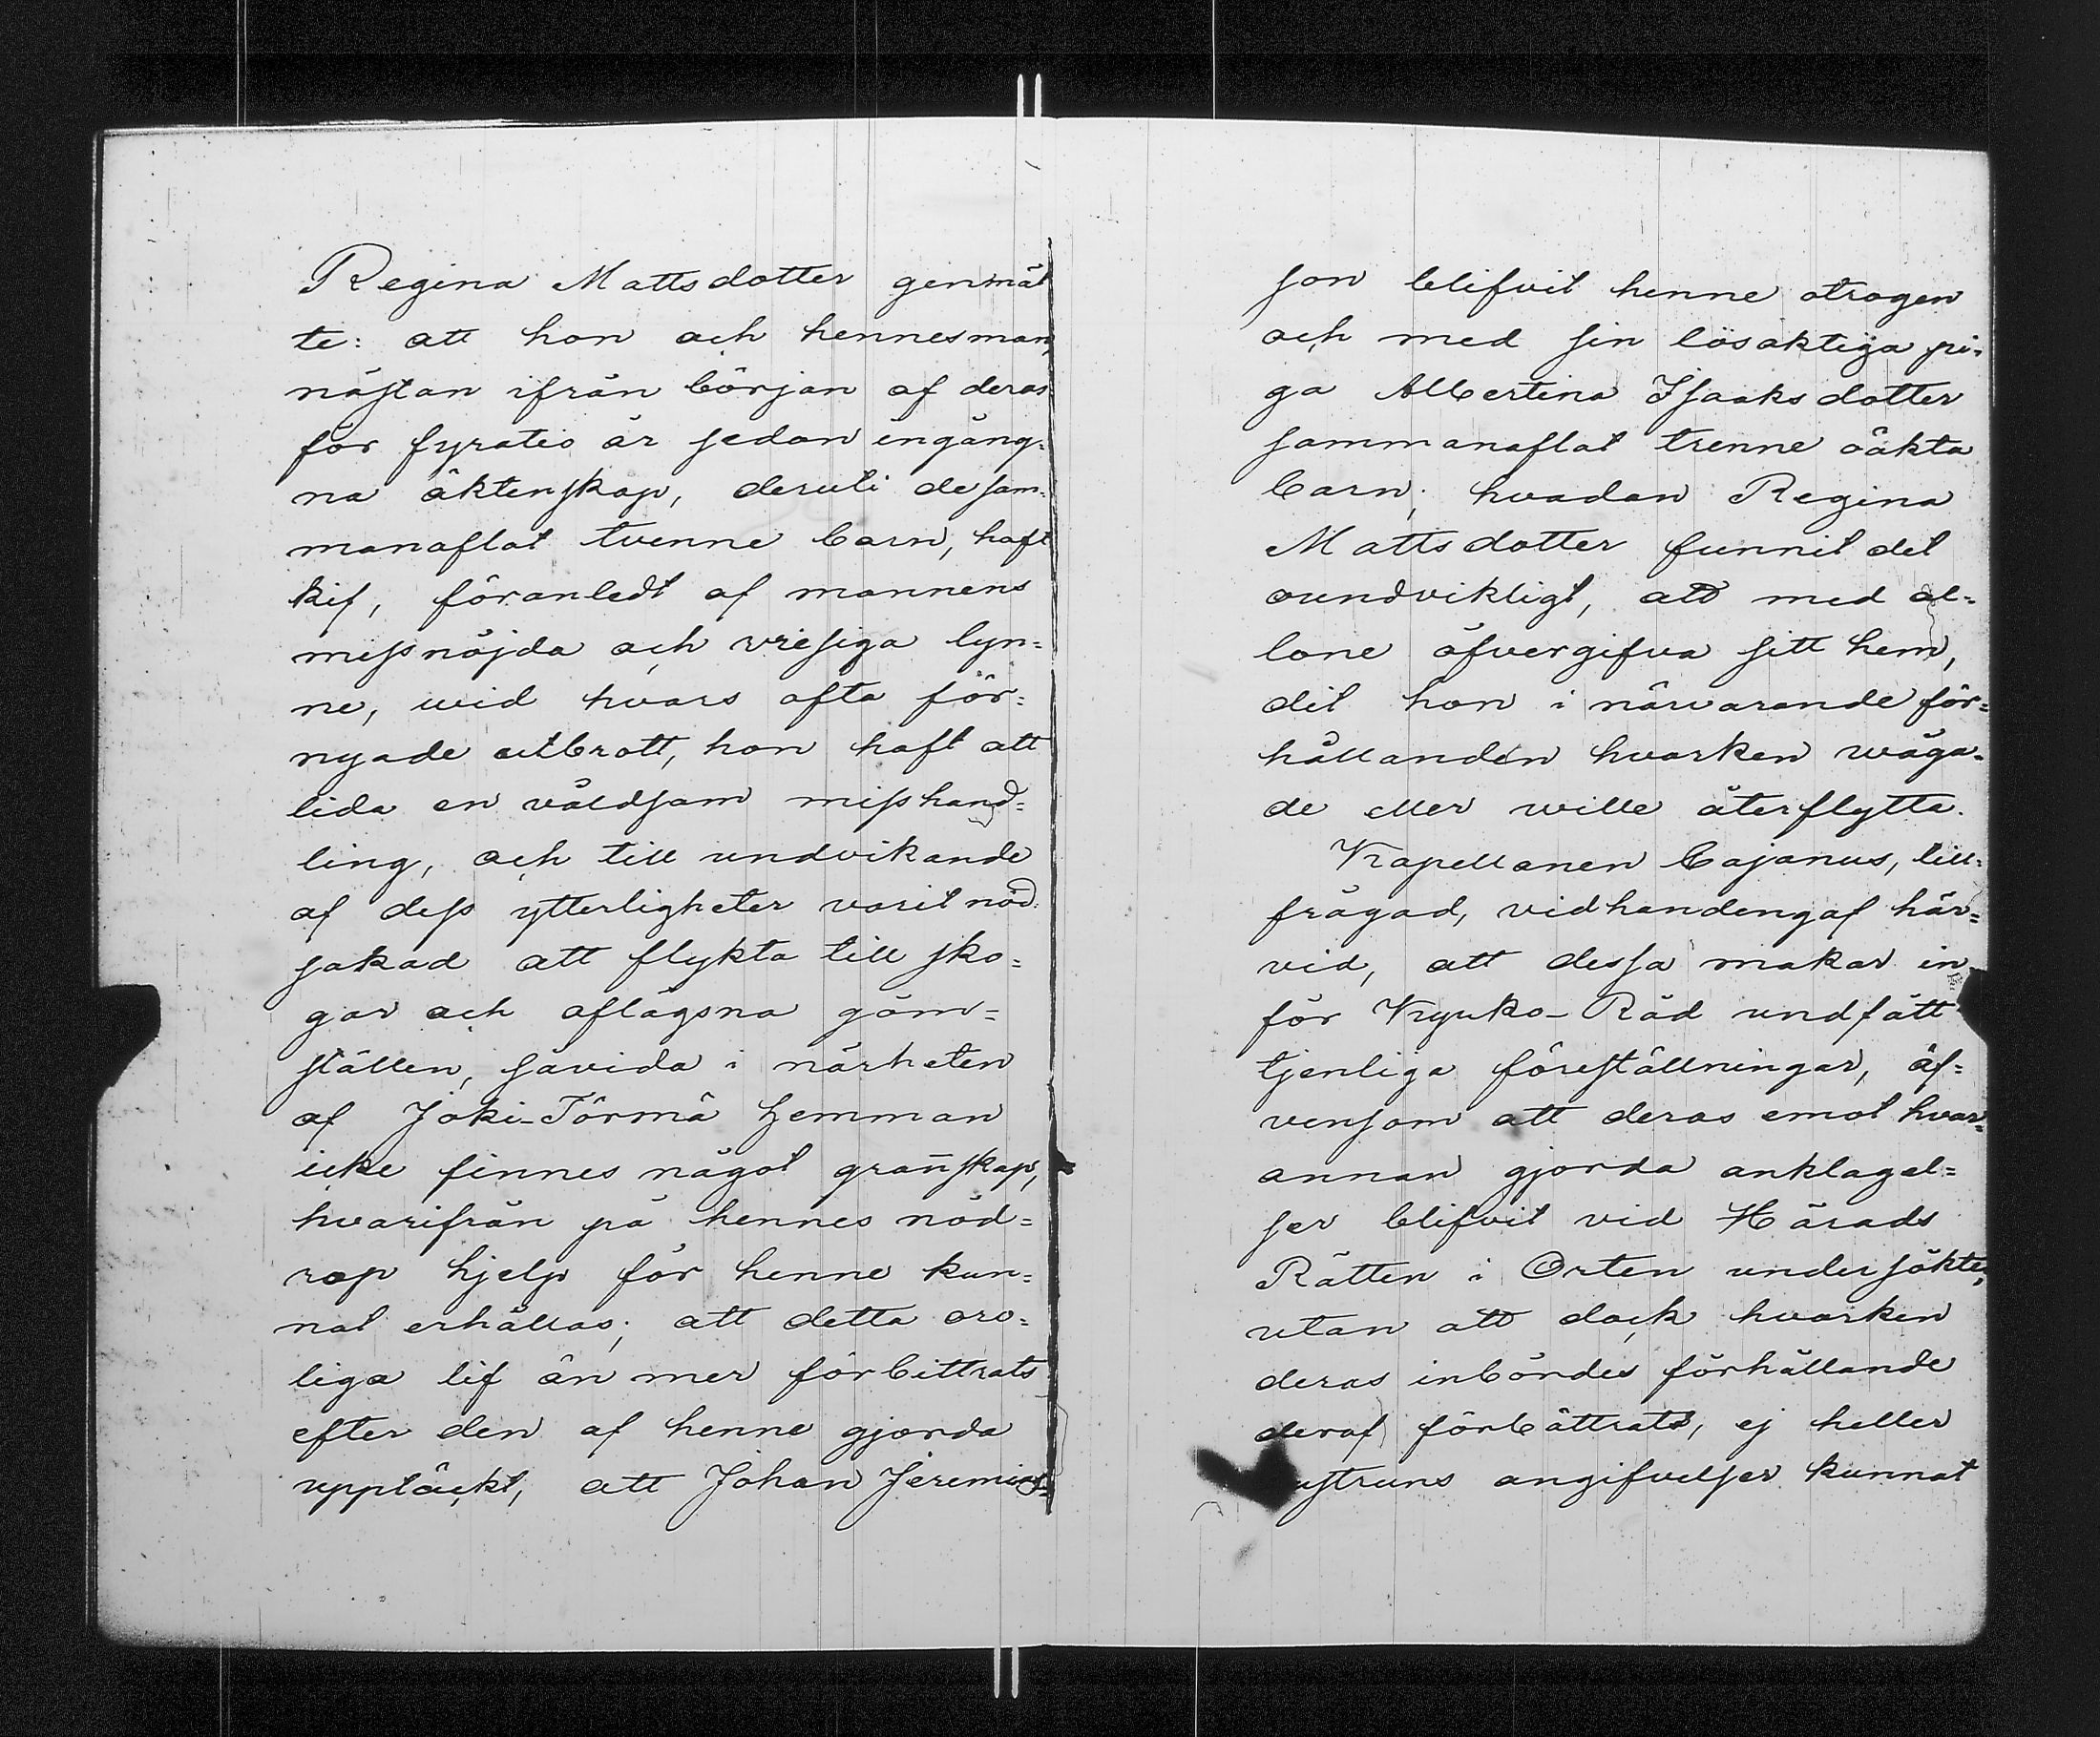 Regina Mattsdotter genmäl
te: att hon och hennes man,
nästan ifrån början af deras
för fyratio år sedan ingång-
na äktenskap, deruti de sam-
manaflat tvenne barn, haft
kif, föranledt af mannens
missnöjda och vresiga lyn=
ne, wid hvars ofta för=
nyade utbrott, hon haft att
lida en våldsam misshand=
ling, och till undvikande
af dess ytterligheter varit nöd-
sakad att flykta till sko=
gar och aflägsna göm=
ställen, såvida i närheten
af Joki-Törmä hemman
icke finnes något gran̄skap,
hvarifrån på hennes nöd=
rop hjelp för henne kun=
nat erhållas; att detta oro=
liga lif än mer förbittrats
efter den af henne gjorda
upptäckt, att Johan Jeremias=
son blifvit henne otrogen
och med sin lösaktiga pi-
ga Albertina Isaaksdotter
sammanaflat trenne oäkta
barn; hvadan Regina
Mattsdotter funnit det
oundvikligt, att med al=
lone öfvergifva sitt hem,
dit hon i närvarande för=
hållanden hvarken wåga-
de eller wille återflytta.
Kapellanen Cajanus, till-
frågad, vidhandengaf här=
vid, att dessa makar in
för Kyrko-Råd undfått
tjenliga föreställningar, äf=
vensom att deras emot hvar=
annan gjorda anklagel=
ser blifvit vid Härads
Rätten i Orten undersökte,
utan att dock hvarken
deras inbördes förhållande
deraf förbättrats, ej heller
ustruns angifvelser kunnat